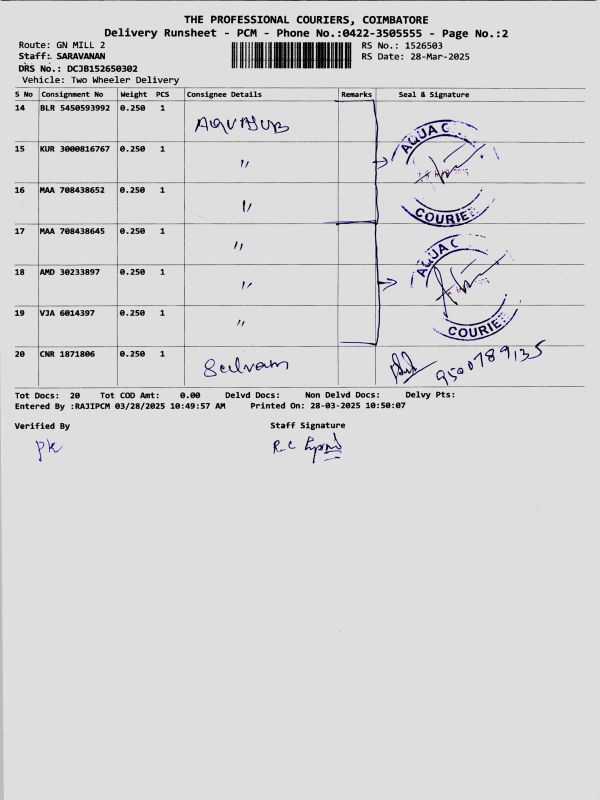 THE PROFESSIONAL COURIERS, COIMBATORE
Delivery Runsheet - PCM - Phone No.:0422-3505555 - Page No.:2
Route: GN MILL 2 RS No.: 1526503
Staff: SARAVANAN RS Date: 28-Mar-2025
DRS No.: DCJB152650302
Vehicle: Two Wheeler Delivery
S No Consignment No Weight PCS Consignee Details Remarks Seal & Signature
14 BLR 5450593992 0.250 1 AQUASUB
AQUA C
15 KUR 3000816767 0.250 1 "
16 MAA 708438652 0.250 1 "
COURIE
17 MAA 708438645 0.250 1 "
AQUA C
18 AMD 30233897 0.250 1 "
19 VJA 6014397 0.250 1 "
COURIE
20 CNR 1871806 0.250 1 Selvam 9500789135
Tot Docs: 20 Tot COD Amt: 0.00 Delvd Docs: Non Delvd Docs: Delvy Pts:
Entered By :RAJIPCM 03/28/2025 10:49:57 AM Printed On: 28-03-2025 10:50:07
Verified By Staff Signature
PK R.C